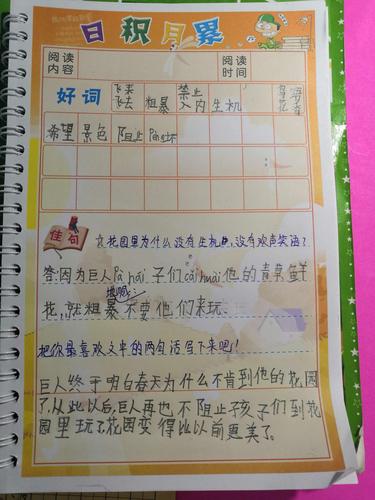 日积月累
阅读
内容
阅读
时间
好词
飞来
飞去
粗暴
禁止
入内
生机
希望 景色 阻止
佳句
花园里为什么没有生机,没有欢声笑语?
答:因为巨人Pà hái 子们cǎi huài他的青草鲜
花,就粗暴不要他们来玩.
把你最喜欢文中的两句话写下来吧!
巨人终于明白春天为什么不肯到他的花园
了.从此以后,巨人再也不阻止孩子们到花
园里玩了花园变得比以前更美了。